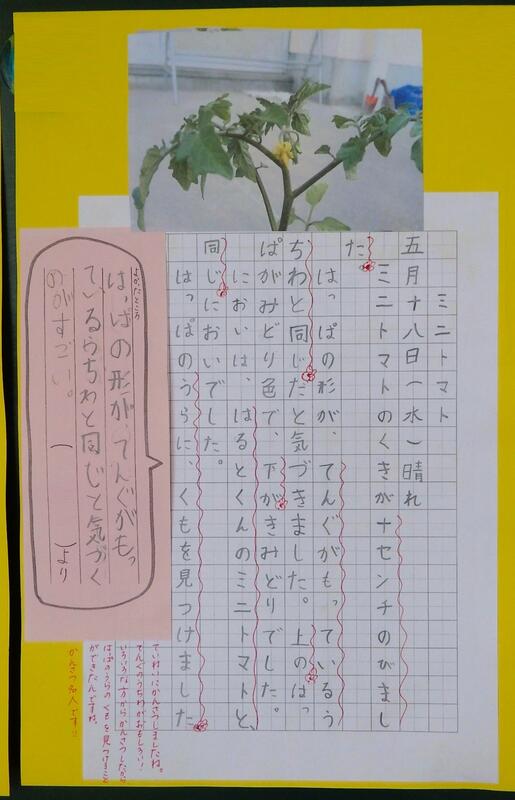 ミニトマト
五月十八日(水)晴れ
ミニトマトのくきが十センチのびまし
た。
はっぱの形が、てんぐがもっているう
ちわと同じだと気づきました。上のはっ
ぱがみどり色で、下がきみどりでした。
においは、はるとくんのミニトマトと、
同じにおいでした。
はっぱのうらに、くもを見つけました
よかったところ
はっぱの形が、てんぐがもっ
ているうちわと同じと気づく
のがすごい。
( )より
ていねいにかんさつしましたね。
てんぐのうちわがおもしろい!
いろいろな方からかんさつしたから、
はっぱのうらのくもを見つけること
ができたんですね。
かんさつ名人です!!